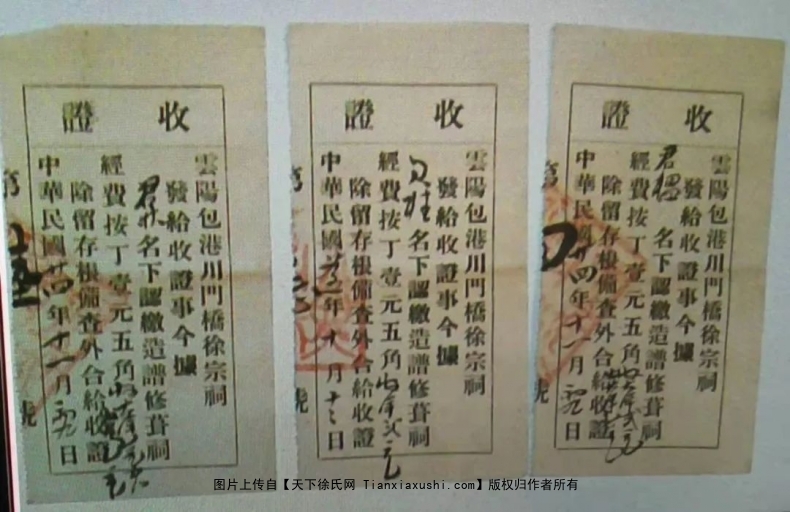 收證
雲陽包港川門橋徐宗祠
發給收證事今據
名下認繳造譜修葺祠
經費按丁壹元五角
除留存根備查外合給收證
中華民國廿四年十一月日
收證
雲陽包港川門橋徐宗祠
發給收證事今據
名下認繳造譜修葺祠
經費按丁壹元五角
除留存根備查外合給收證
中華民國年十月十三日
收證
雲陽包港川門橋徐宗祠
發給收證事今據
君楹名下認繳造譜修葺祠
經費按丁壹元五角
除留存根備查外合給收證
中華民國廿四年十一月日
图片上传自【天下徐氏网 Tianxiaxushi.com】版权归作者所有